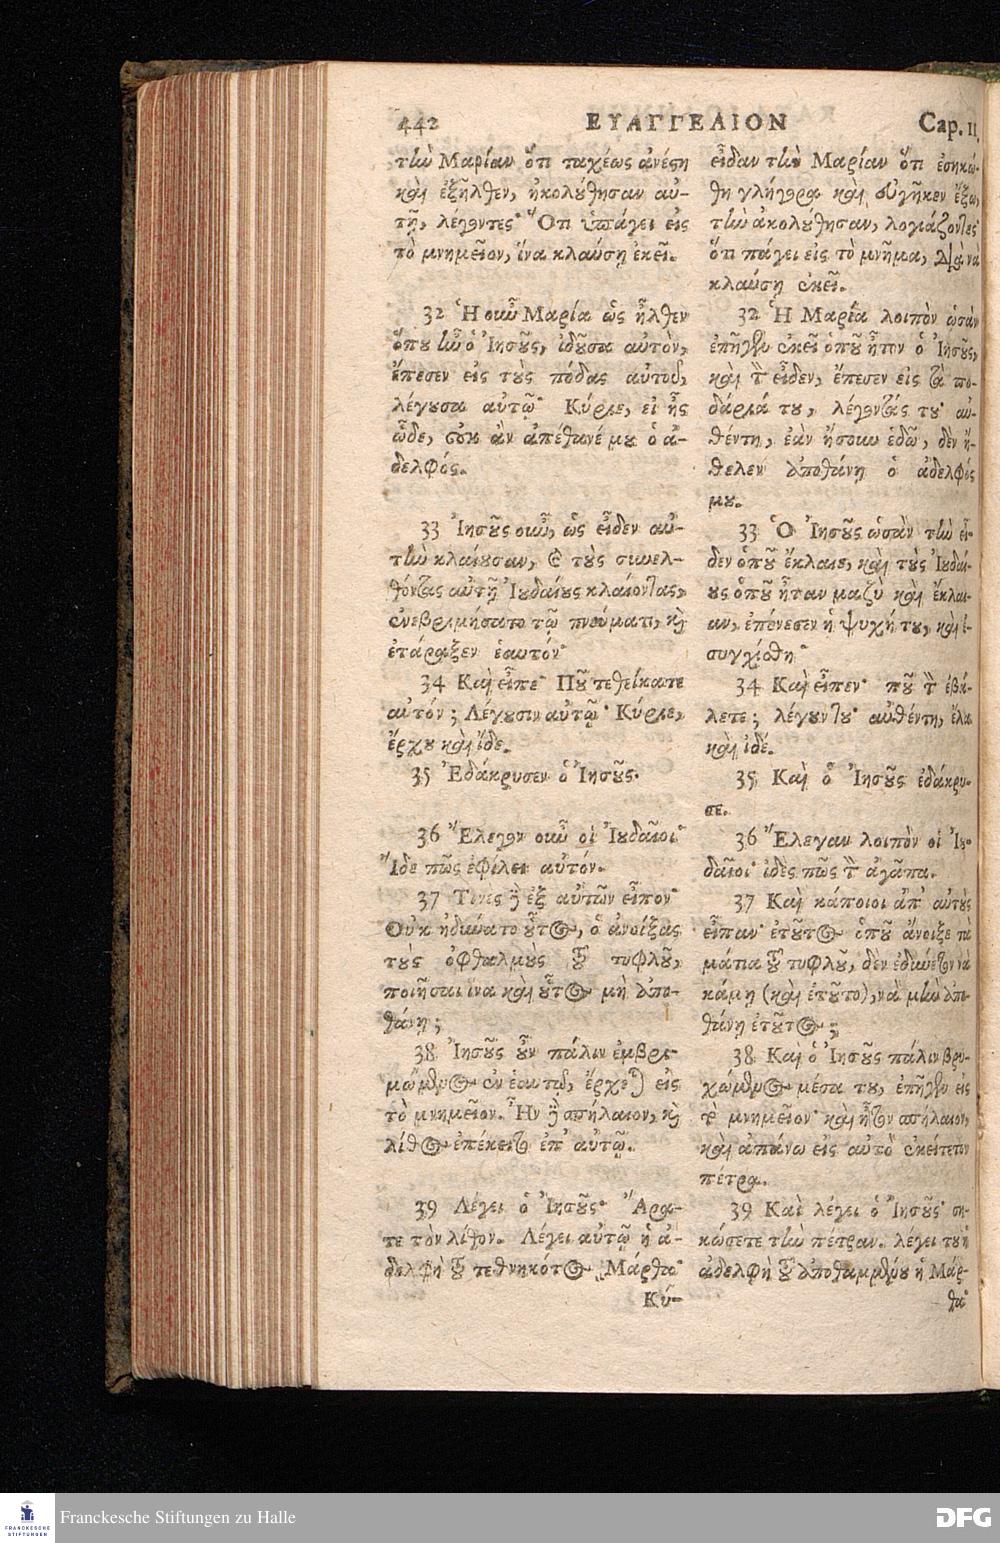 442 ΕΥΑΓΓΕΛΙΟΝ Cap. 11.
τὴν Μαρίαν ὅτι ταχέως ἀνέστη
καὶ ἐξῆλθεν, ἠκολούθησαν αὐ-
τῇ, λέγοντες· Ὅτι ὑπάγει εἰς
τὸ μνημεῖον, ἵνα κλαύσῃ ἐκεῖ.
32 Ἡ οὖν Μαρία ὡς ἦλθεν
ὅπου ἦν ὁ Ἰησοῦς, ἰδοῦσα αὐτὸν,
ἔπεσεν εἰς τοὺς πόδας αὐτοῦ,
λέγουσα αὐτῷ· Κύριε, εἰ ἦς
ὧδε, οὐκ ἂν ἀπέθανέ μου ὁ ἀ-
δελφός.
33 Ἰησοῦς οὖν, ὡς εἶδεν αὐ-
τὴν κλαίουσαν, καὶ τοὺς συνελ-
θόντας αὐτῇ Ἰουδαίους κλαίοντας,
ἐνεβριμήσατο τῷ πνεύματι, καὶ
ἐτάραξεν ἑαυτόν·
34 Καὶ εἶπε· Ποῦ τεθείκατε
αὐτόν; Λέγουσιν αὐτῷ· Κύριε,
ἔρχου καὶ ἴδε.
35 Ἐδάκρυσεν ὁ Ἰησοῦς.
36 Ἔλεγον οὖν οἱ Ἰουδαῖοι·
Ἴδε πῶς ἐφίλει αὐτόν.
37 Τινὲς δὲ ἐξ αὐτῶν εἶπον·
Οὐκ ἠδύνατο οὗτος, ὁ ἀνοίξας
τοὺς ὀφθαλμοὺς τοῦ τυφλοῦ,
ποιῆσαι ἵνα καὶ οὗτος μὴ ἀπο-
θάνῃ;
38 Ἰησοῦς οὖν πάλιν ἐμβρι-
μώμενος ἐν ἑαυτῷ, ἔρχεται εἰς
τὸ μνημεῖον. Ἦν δὲ σπήλαιον, καὶ
λίθος ἐπέκειτο ἐπ' αὐτῷ.
39 Λέγει ὁ Ἰησοῦς· Ἄρα-
τε τὸν λίθον. Λέγει αὐτῷ ἡ ἀ-
δελφὴ τοῦ τεθνηκότος Μάρθα·
Κύ-
εἶδαν τὴν Μαρίαν ὅτι ἐσηκώ-
θη γλήγορα καὶ εὐγῆκεν ἔξω,
τὴν ἀκολούθησαν, λογιάζοντες
ὅτι πάγει εἰς τὸ μνῆμα, διὰ νὰ
κλαύσῃ ἐκεῖ.
32 Ἡ Μαρία λοιπὸν ὡσὰν
ἐπῆγεν ἐκεῖ ὁποῦ ἦτον ὁ Ἰησοῦς,
καὶ τὸν εἶδεν, ἔπεσεν εἰς τὰ πο-
δάριά του, λέγοντάς του· αὐ-
θέντη, ἐὰν ἤσουν ἐδῶ, δὲν ἤ-
θελεν ἀποθάνῃ ὁ ἀδελφός
μου.
33 Ὁ Ἰησοῦς ὡσὰν τὴν εἶ-
δεν ὁποῦ ἔκλαιε, καὶ τοὺς Ἰουδαί-
ους ὁποῦ ἦταν μαζὺ καὶ ἔκλαι-
αν, ἐπόνεσεν ἡ ψυχή του, καὶ ἐ-
συγχίσθη·
34 Καὶ εἶπεν· ποῦ τὸν ἐβά-
λετε; λέγουν του· αὐθέντη, ἔλα
καὶ ἰδέ.
35 Καὶ ὁ Ἰησοῦς ἐδάκρυ-
σε.
36 Ἔλεγαν λοιπὸν οἱ Ἰου-
δαῖοι· ἰδὲς πῶς τὸν ἀγάπα.
37 Καὶ κάποιοι ἀπ' αὐτοὺς
εἶπαν· ἐτοῦτος ὁποῦ ἄνοιξε τὰ
μάτια τοῦ τυφλοῦ, δὲν ἐδύνετον νὰ
κάμῃ (καὶ ἐτοῦτο), νὰ μὴν ἀπο-
θάνῃ ἐτοῦτος;
38 Καὶ ὁ Ἰησοῦς πάλιν βρυ-
χώμενος μέσα του, ἐπῆγεν εἰς
τὸ μνημεῖον· καὶ ἦτον σπήλαιον,
καὶ ἀπάνω εἰς αὐτὸ ἐκείτετον
πέτρα.
39 Καὶ λέγει ὁ Ἰησοῦς· ση-
κώσετε τὴν πέτραν. λέγει του ἡ
ἀδελφὴ τοῦ ἀποθαμμένου ἡ Μάρ-
θα·
FRANCKESCHE
STIFTUNGEN
Franckesche Stiftungen zu Halle
DFG